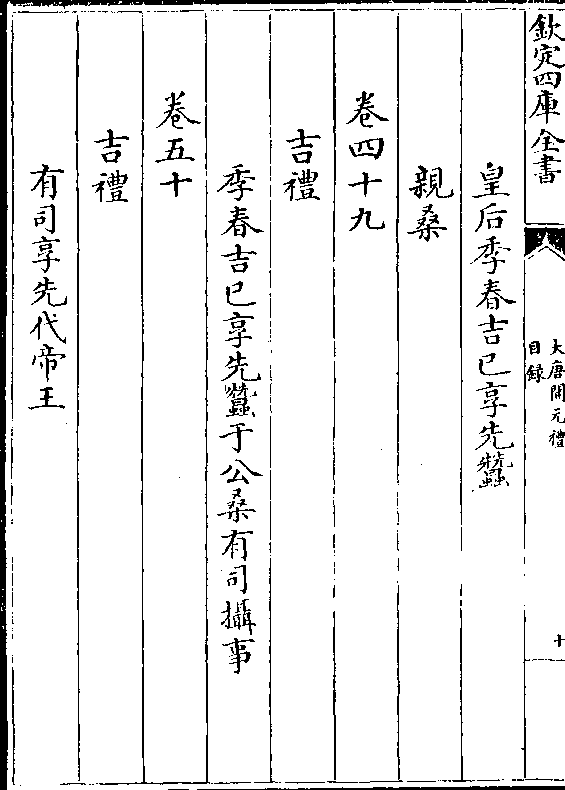 欽定四庫全書
大唐開元禮
目錄
十
皇后季春吉巳享先蠶
親桑
卷四十九
吉禮
季春吉巳享先蠶于公桑有司攝事
卷五十
吉禮
有司享先代帝王